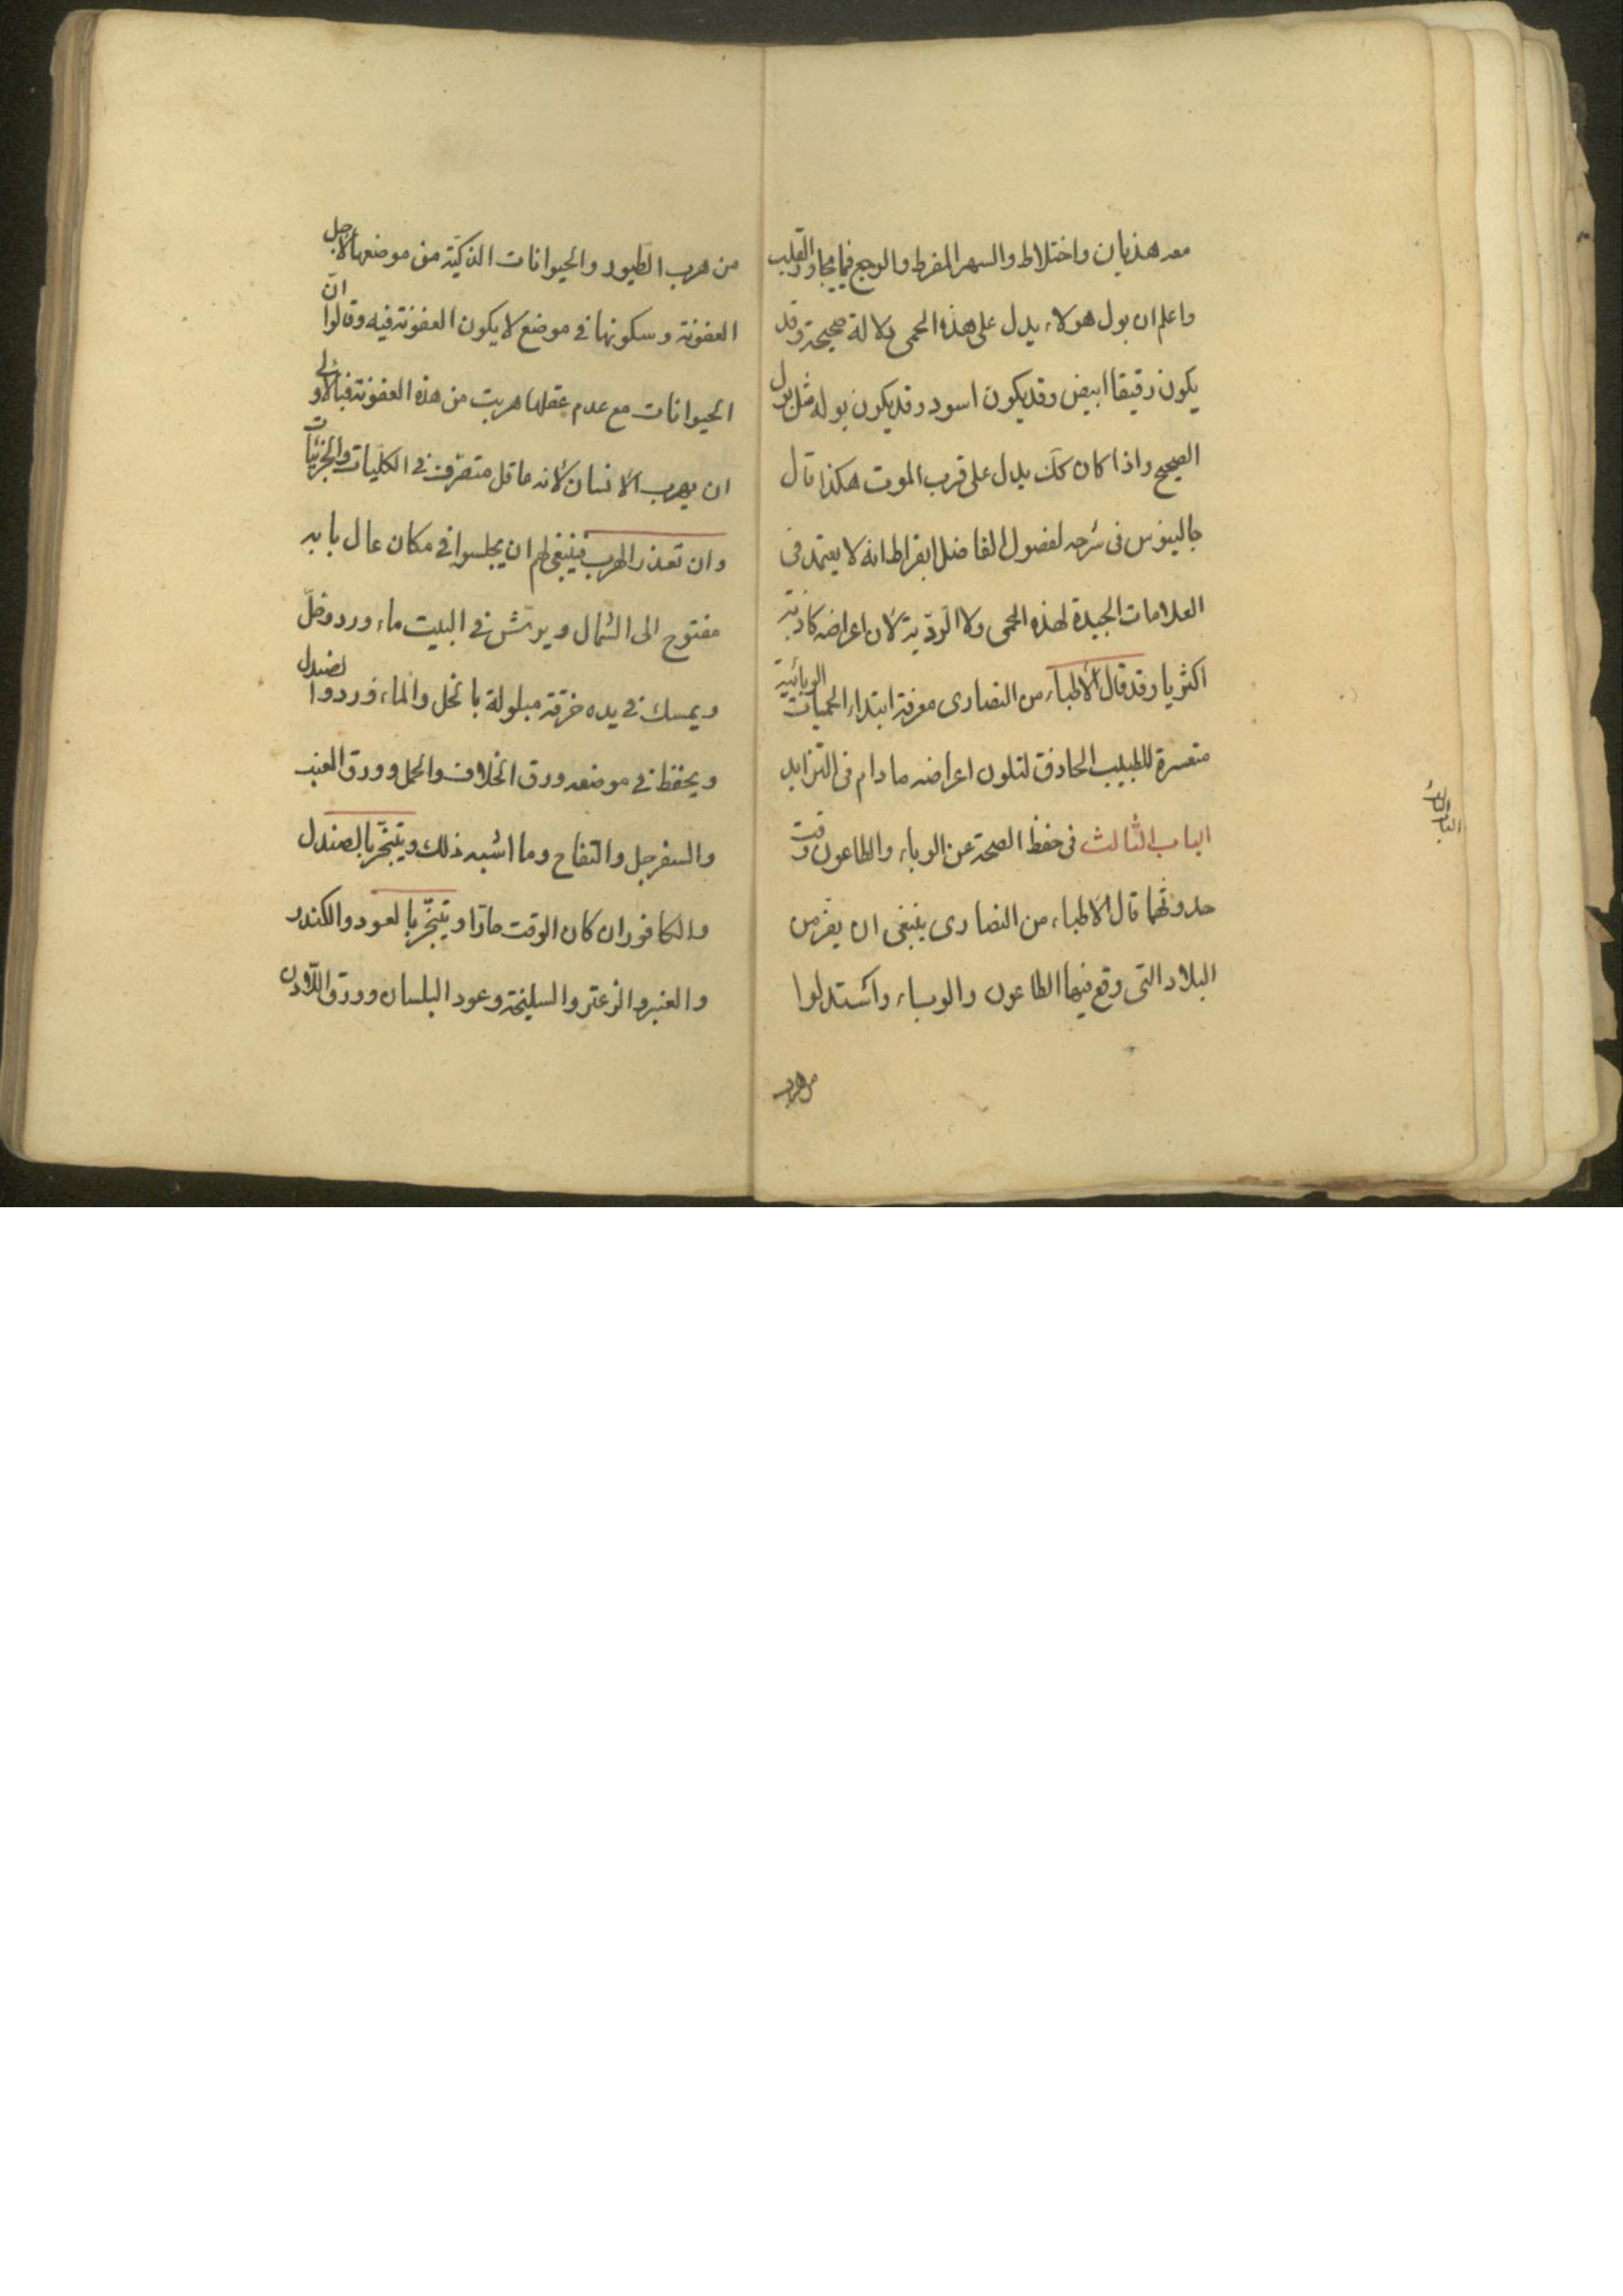 معه هذيان واختلاط والسهر المفرط والوجع فيما يجاور القلب
واعلم ان بول هولاء يدل على هذه الحمى دلالة صحيحة وقد
يكون رقيقا ابيض وقد يكون اسود وقد يكون بوله مثل بول
الصحيح واذا كان كك يدل على قرب الموت هكذا قال
جالينوس فى شرحه لفصول الفاضل ابقراط انه لا يعتمد فى
العلامات الجيدة لهذه الحمى ولا الرديّة لأن اعراضه كاذبة
اكثريا وقد قال الأطباء من النصارى معرفة ابتداء الحميات الوبائية
متعسرة للطبيب الحاذق لتلون اعراضه ما دام فى التزايد
الباب الثالث فى حفظ الصحة عن الوباء والطاعون وقت
حدوثهما قال الاطباء من النصارى ينبغى ان يفرّ من
البلاد التى وقع فيها الطاعون والوباء واستدلوا
من هرب
الباب الثالث
من هرب الطيور والحيوانات الذكيّة من موضعها لأجل
العفونة وسكونها فى موضع لا يكون العفونة فيه وقالوا انّ
الحيوانات مع عدم عقلها هربت من هذه العفونة فبالأولى
ان يهرب الأنسان لأنه عاقل متصرّف فى الكليات والجزئيات
وان تعذر الهرب فينبغى لهم ان يجلسوا فى مكان عال بابه
مفتوح الى الشمال ويرتش فى البيت ماء ورد وخلّ
ويمسك فى يده خرقة مبلولة بالخل والماء ورد والصندل
ويحفظ فى موضعه ورق الخلاف والحمل وورق العنب
والسفرجل والتفاح وما اشبه ذلك ويتبخّر بالصندل
والكافور ان كان الوقت حارّا ويتبخّر بالعود والكندر
والعنبر والزعتر والسليخة وعود البلسان وورق اللّاودن